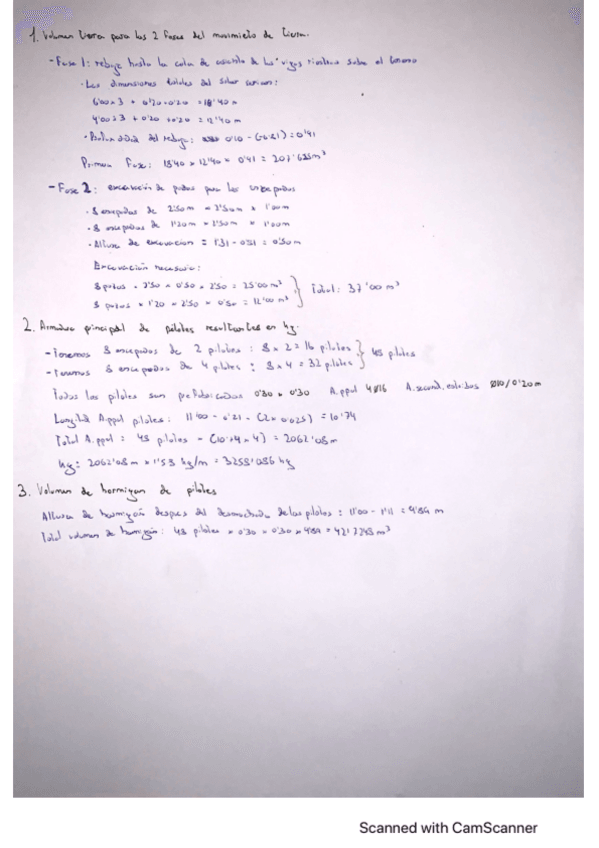 1. Volumen tierra para las 2 fases del movimiento de tierra.
- Fase 1: rebaje hasta la cota de asiento de las vigas riostras sobre el terreno
· Las dimensiones totales del solar serian:
6'00 x 3 + 0'20 + 0'20 = 18'40 m
4'00 x 3 + 0'20 + 0'20 = 12'40 m
· Profundidad del rebaje: 0'10 - (-0'31) = 0'41
Primera Fase: 18'40 x 12'40 x 0'41 = 207'635 m³
- Fase 2: excavación de pozos para los encepados
· 8 encepados de 2'50 m x 2'50 m x 1'00 m
· 8 encepados de 1'20 m x 2'50 m x 1'00 m
· Altura de excavación = 1'31 - 0'81 = 0'50 m
Excavación necesaria:
8 pozos x 2'50 x 0'50 x 2'50 = 25'00 m³
8 pozos x 1'20 x 2'50 x 0'50 = 12'00 m³
Total: 37'00 m³
2. Armadura principal de pilotes resultantes en kg.
- Tenemos 8 encepados de 2 pilotes: 8 x 2 = 16 pilotes
- Tenemos 8 encepados de 4 pilotes: 8 x 4 = 32 pilotes
48 pilotes
Todos los pilotes son prefabricados 0'30 x 0'30 A.ppal 4Ø16 A.secund. estribos Ø10/0'20m
Longitud A.ppal pilotes: 11'00 - 0'21 - (2 x 0'025) = 10'74
Total A.ppal: 48 pilotes x (10'74 x 4) = 2062'08 m
kg: 2062'08 m x 1'58 kg/m = 3258'086 kg
3. Volumen de hormigon de pilotes
Altura de hormigón despues del desmochado de los pilotes: 11'00 - 1'11 = 9'89 m
Total volumen de hormigón: 48 pilotes x 0'30 x 0'30 x 9'89 = 42'7248 m³
Scanned with CamScanner